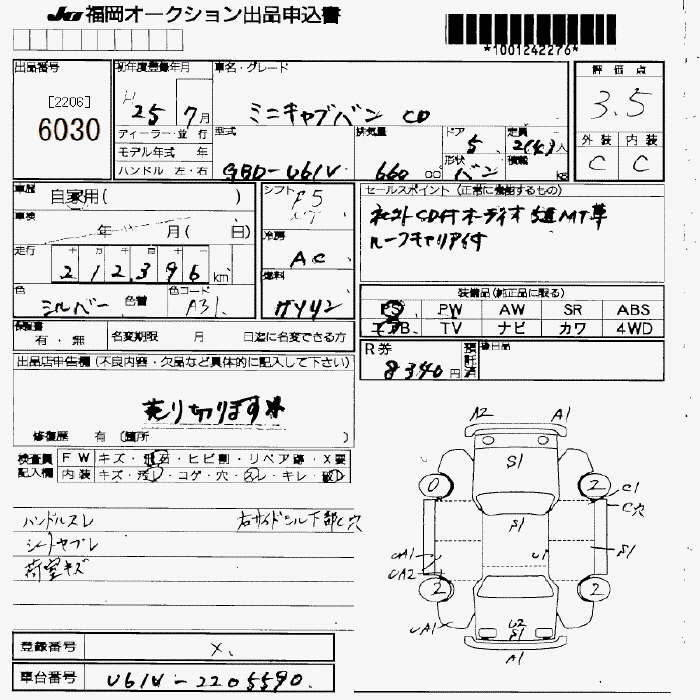 JU 福岡オークション出品申込書
*1001242276*
出品番号
[2206]
6030
初年度登録年月
H 25 7月
ディーラー・並行
モデル年式 年
ハンドル 左・右
車名・グレード
ミニキャブバン CD
型式
GBD-U61V
排気量
660 CC
ドア
5
形状
バン
定員
2(4)人
積載
kg
評価点
3.5
外装 内装
C C
車歴
自家用( )
車検
年 月( 日)
走行
212,396 km
色
シルバー 色替
色コード
A31
シフト
F5
冷房
AC
燃料
ガソリン
セールスポイント (正常に機能するもの)
社外CD付オーディオ 5速MT車
ルーフキャリア付
装備品(純正品に限る)
PS PW AW SR ABS
エアB TV ナビ カワ 4WD
保証書
有・無
名変期限 月 日迄に名変できる方
R券
8340円
預託済
後日品
出品店申告欄 (不良内容・欠品など具体的に記入して下さい)
売り切ります
修復歴 有 (箇所
検査員記入欄
FW キズ・飛石・ヒビ割・リペア跡・X要
内装 キズ・汚レ・コゲ・穴・スレ・キレ・破レ
ハンドルスレ 右サイドシル下部C穴
シートヤブレ
荷室キズ
A2 A1
S1
0 2
C1
C穴
S1
UA1 U1 S1
UA2
2 2
UA1
U2
S1
A1
登録番号 X.
車台番号 U61V-2205590.